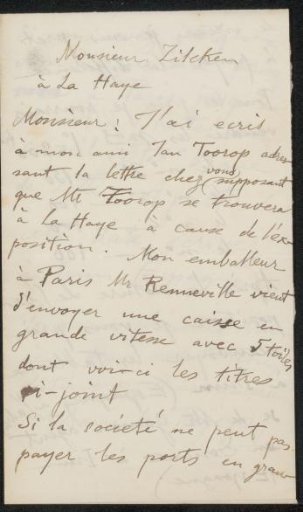 Monsieur Zilcken
à La Haye
Monsieur : J'ai ecris
à mon ami Jan Toorop adres
sant la lettre chez vous supposant
que Mr Toorop se trouvera
à la Haye à cause de l'ex
position. Mon emballeur
à Paris Mr Renneville vient
d'envoyer une caisse en
grande vitesse avec 5 toiles
dont voi-ci les titres
ci-joint
Si la société ne peut pas
payer les ports en gran-